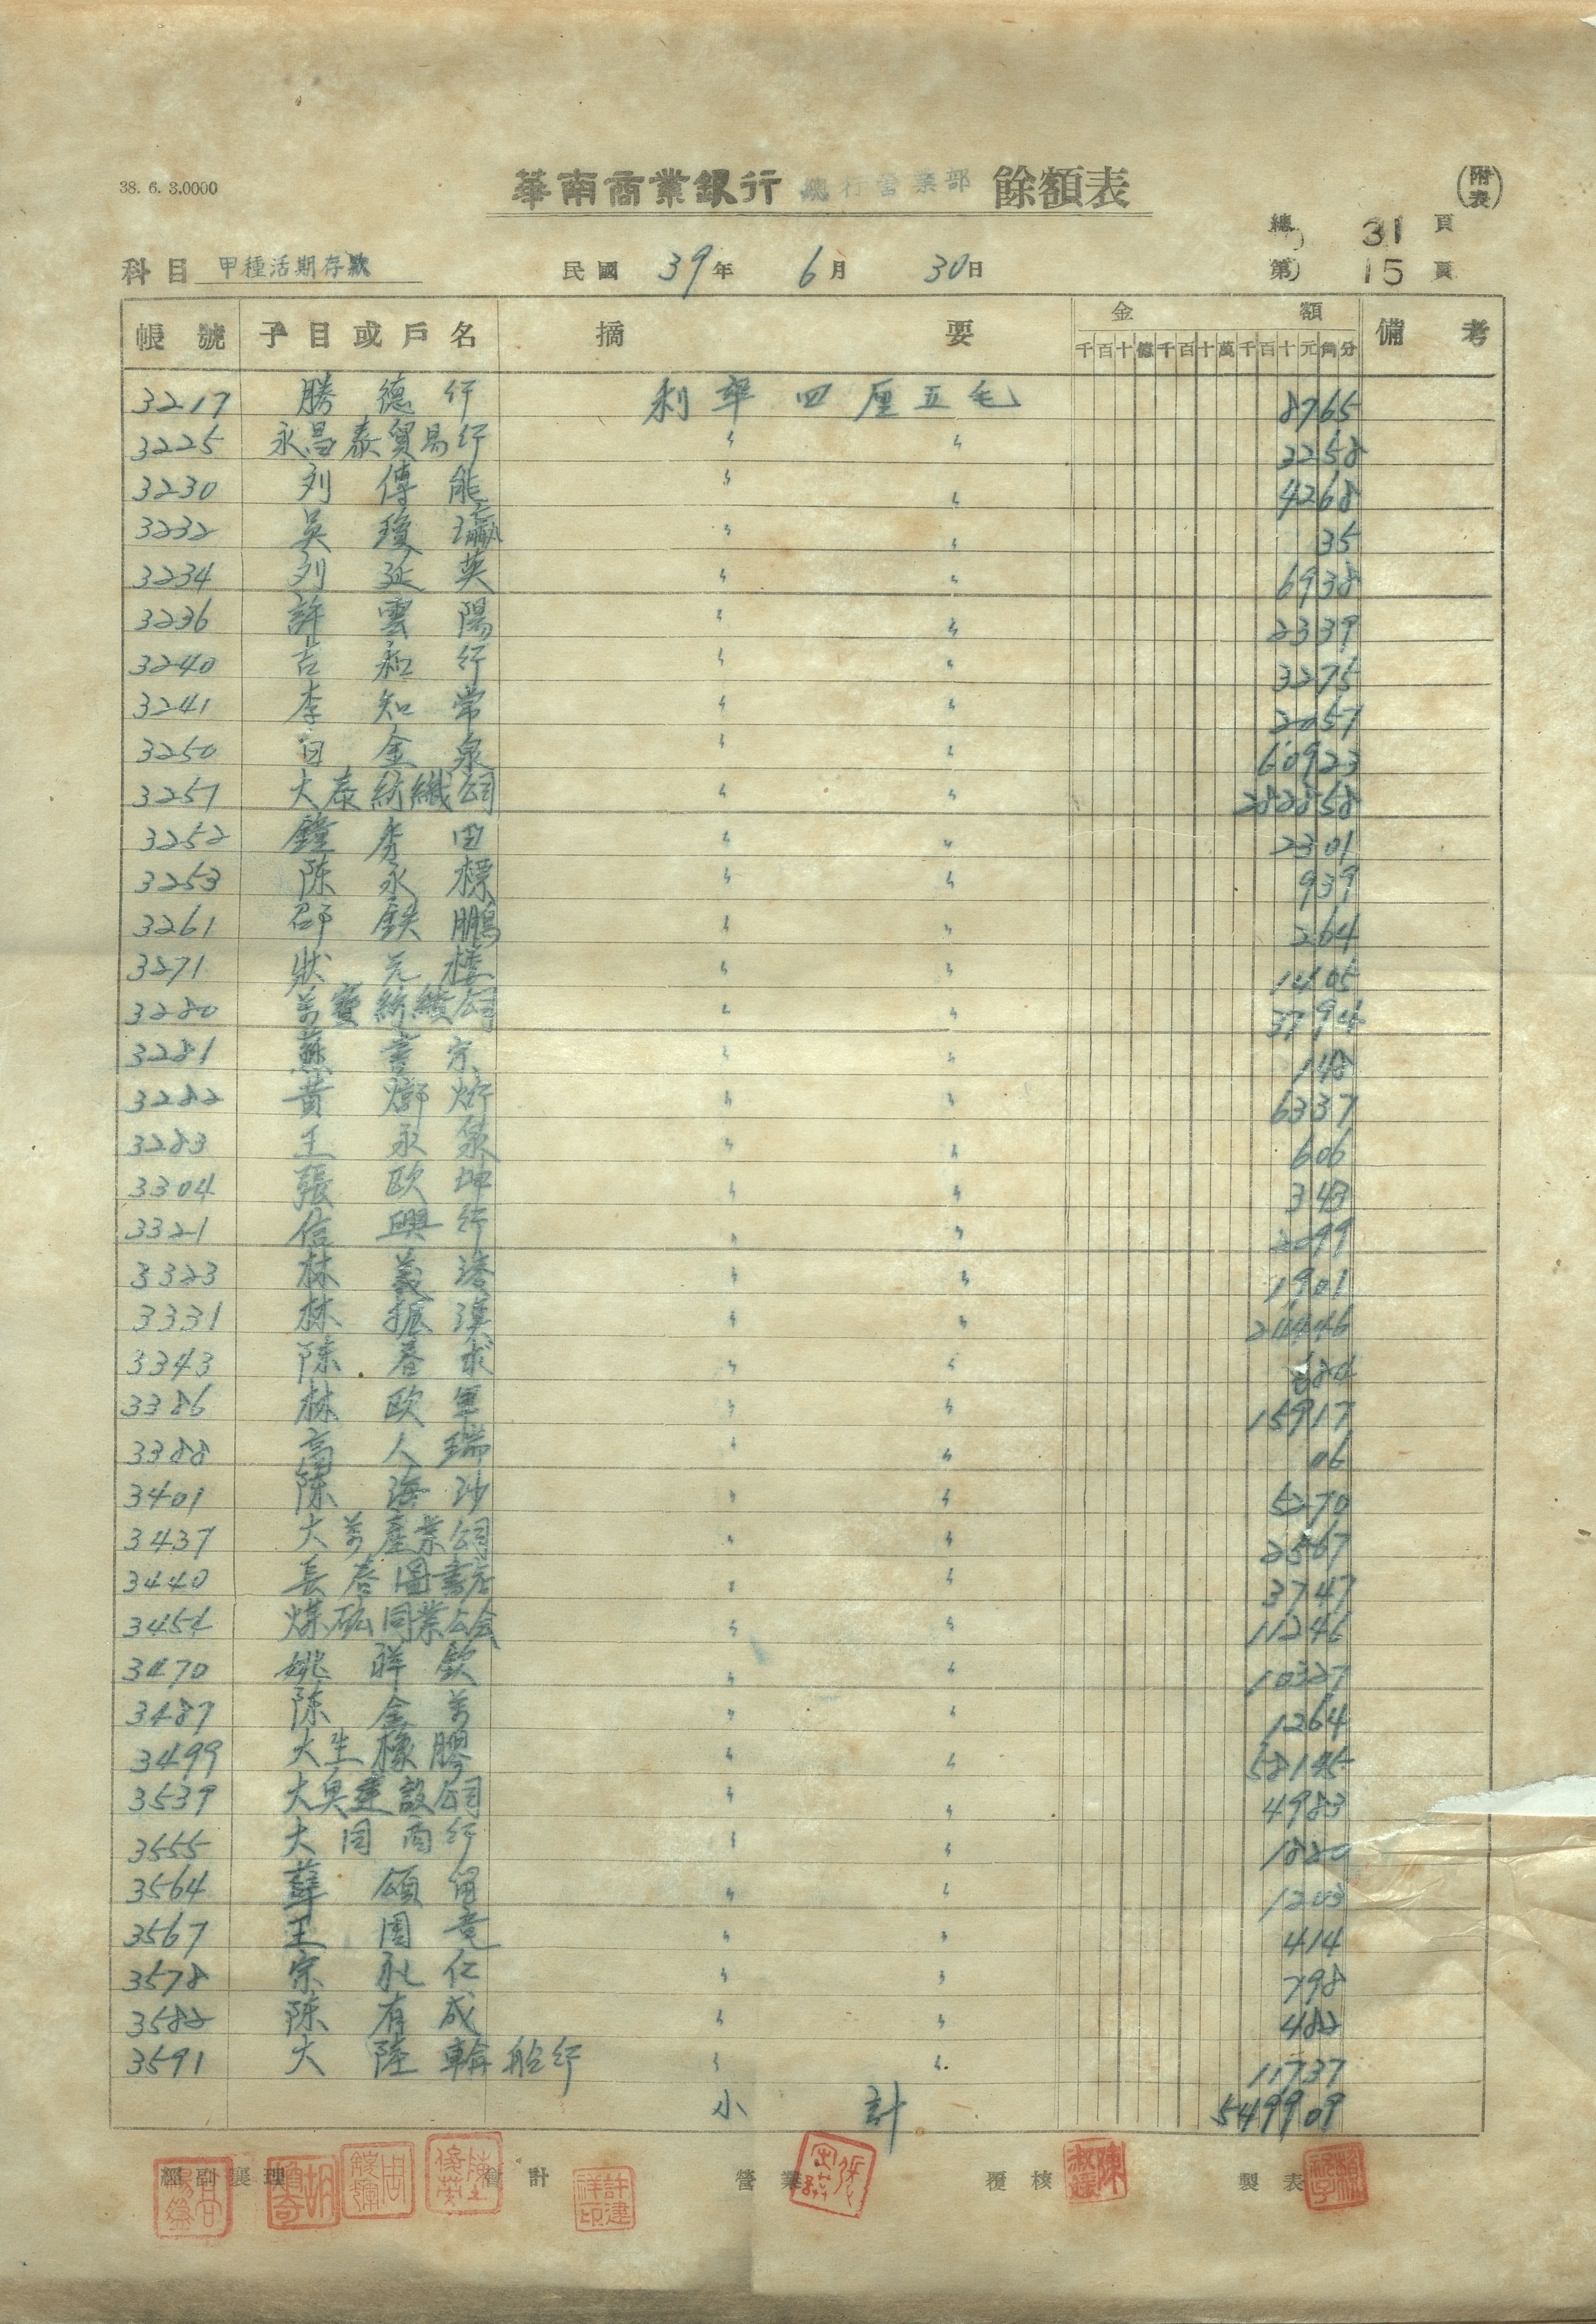 38. 6. 3.0000
華南商業銀行 總行營業部 餘額表 (附表)
總 31 頁
科目 甲種活期存款 民國 39 年 6 月 30 日 第 15 頁
帳號 子目或戶名 摘要 金額 備考
千百十億千百十萬千百十元角分
3217 勝德行 利率四厘五毛 8765
3225 永昌泰貿易行 〃 〃 2258
3230 列傳能 〃 〃 4268
3232 吳瓊瀛 〃 〃 35
3234 列延英 〃 〃 6938
3236 許雲陽 〃 〃 2339
3240 吉和行 〃 〃 3275
3241 李知常 〃 〃 2057
3250 白金泉 〃 〃 60923
3257 大泰紡織公司 〃 〃 282858
3252 鐘秀田 〃 〃 2301
3253 陳永標 〃 〃 939
3261 邵鉄鵬 〃 〃 264
3271 狀元楼 〃 〃 1405
3280 万寶紡績公司 〃 〃 3794
3281 蘇宗 〃 〃 148
3282 黃 〃 〃 6337
3283 王永泉 〃 〃 606
3304 張欧坤 〃 〃 343
3321 信興行 〃 〃 2099
3323 林義 〃 〃 1901
3331 林振漢 〃 〃 24446
3343 陳春求 〃 〃 684
3386 林欧軍 〃 〃 15917
3388 高人瑞 〃 〃 06
3401 陳海沙 〃 〃 5270
3437 大万產業公司 〃 〃 2567
3440 長春圖書店 〃 〃 3747
3454 煤砿同業公会 〃 〃 11246
3470 姚祥欽 〃 〃 10327
3487 陳金万 〃 〃 1264
3499 大生橡膠 〃 〃 58145
3539 大與建設公司 〃 〃 4983
3555 大同商行 〃 〃 1820
3564 薛頌留 〃 〃 1203
3567 王周竟 〃 〃 414
3578 宗礼仁 〃 〃 798
3582 陳有成 〃 〃 482
3591 大陸輪船行 〃 〃 11737
小計 549909
經副襄理 會計 營業 覆核 製表